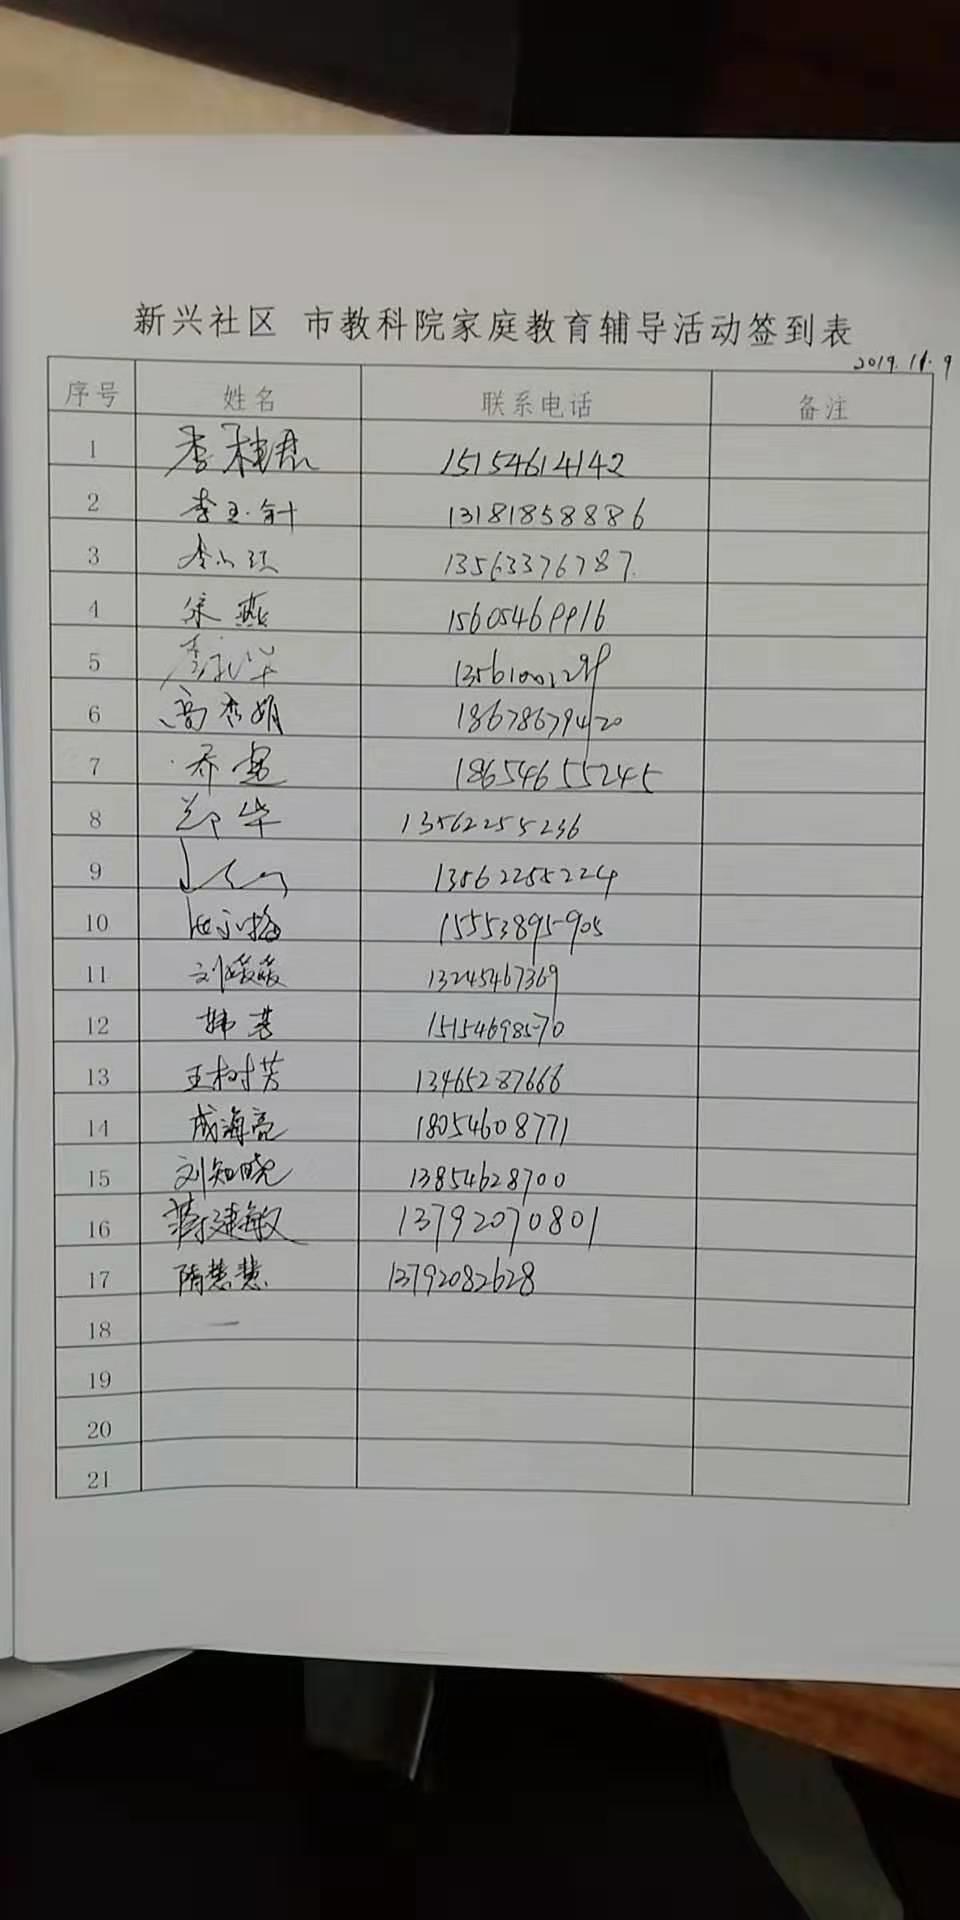 新兴社区 市教科院家庭教育辅导活动签到表
2019.11.9
序号 姓名 联系电话 备注
1 李桂君 15154614142
2 李玉针 13181858886
3 13563376787.
4 徐燕 15605469916
5 李 华 
6 高秀娟 18678679420
7 乔 18654655245
8 郑华 13562255236
9 13562255224
10 张永梅 15553895905
11 刘媛媛 13245467369
12 韩芸 15154698570
13 王树芳 13465287666
14 成海亮 18054608771
15 刘知晓 13854628700
16 蒋建敏 13792070801
17 隋慧慧 13792082628
18
19
20
21